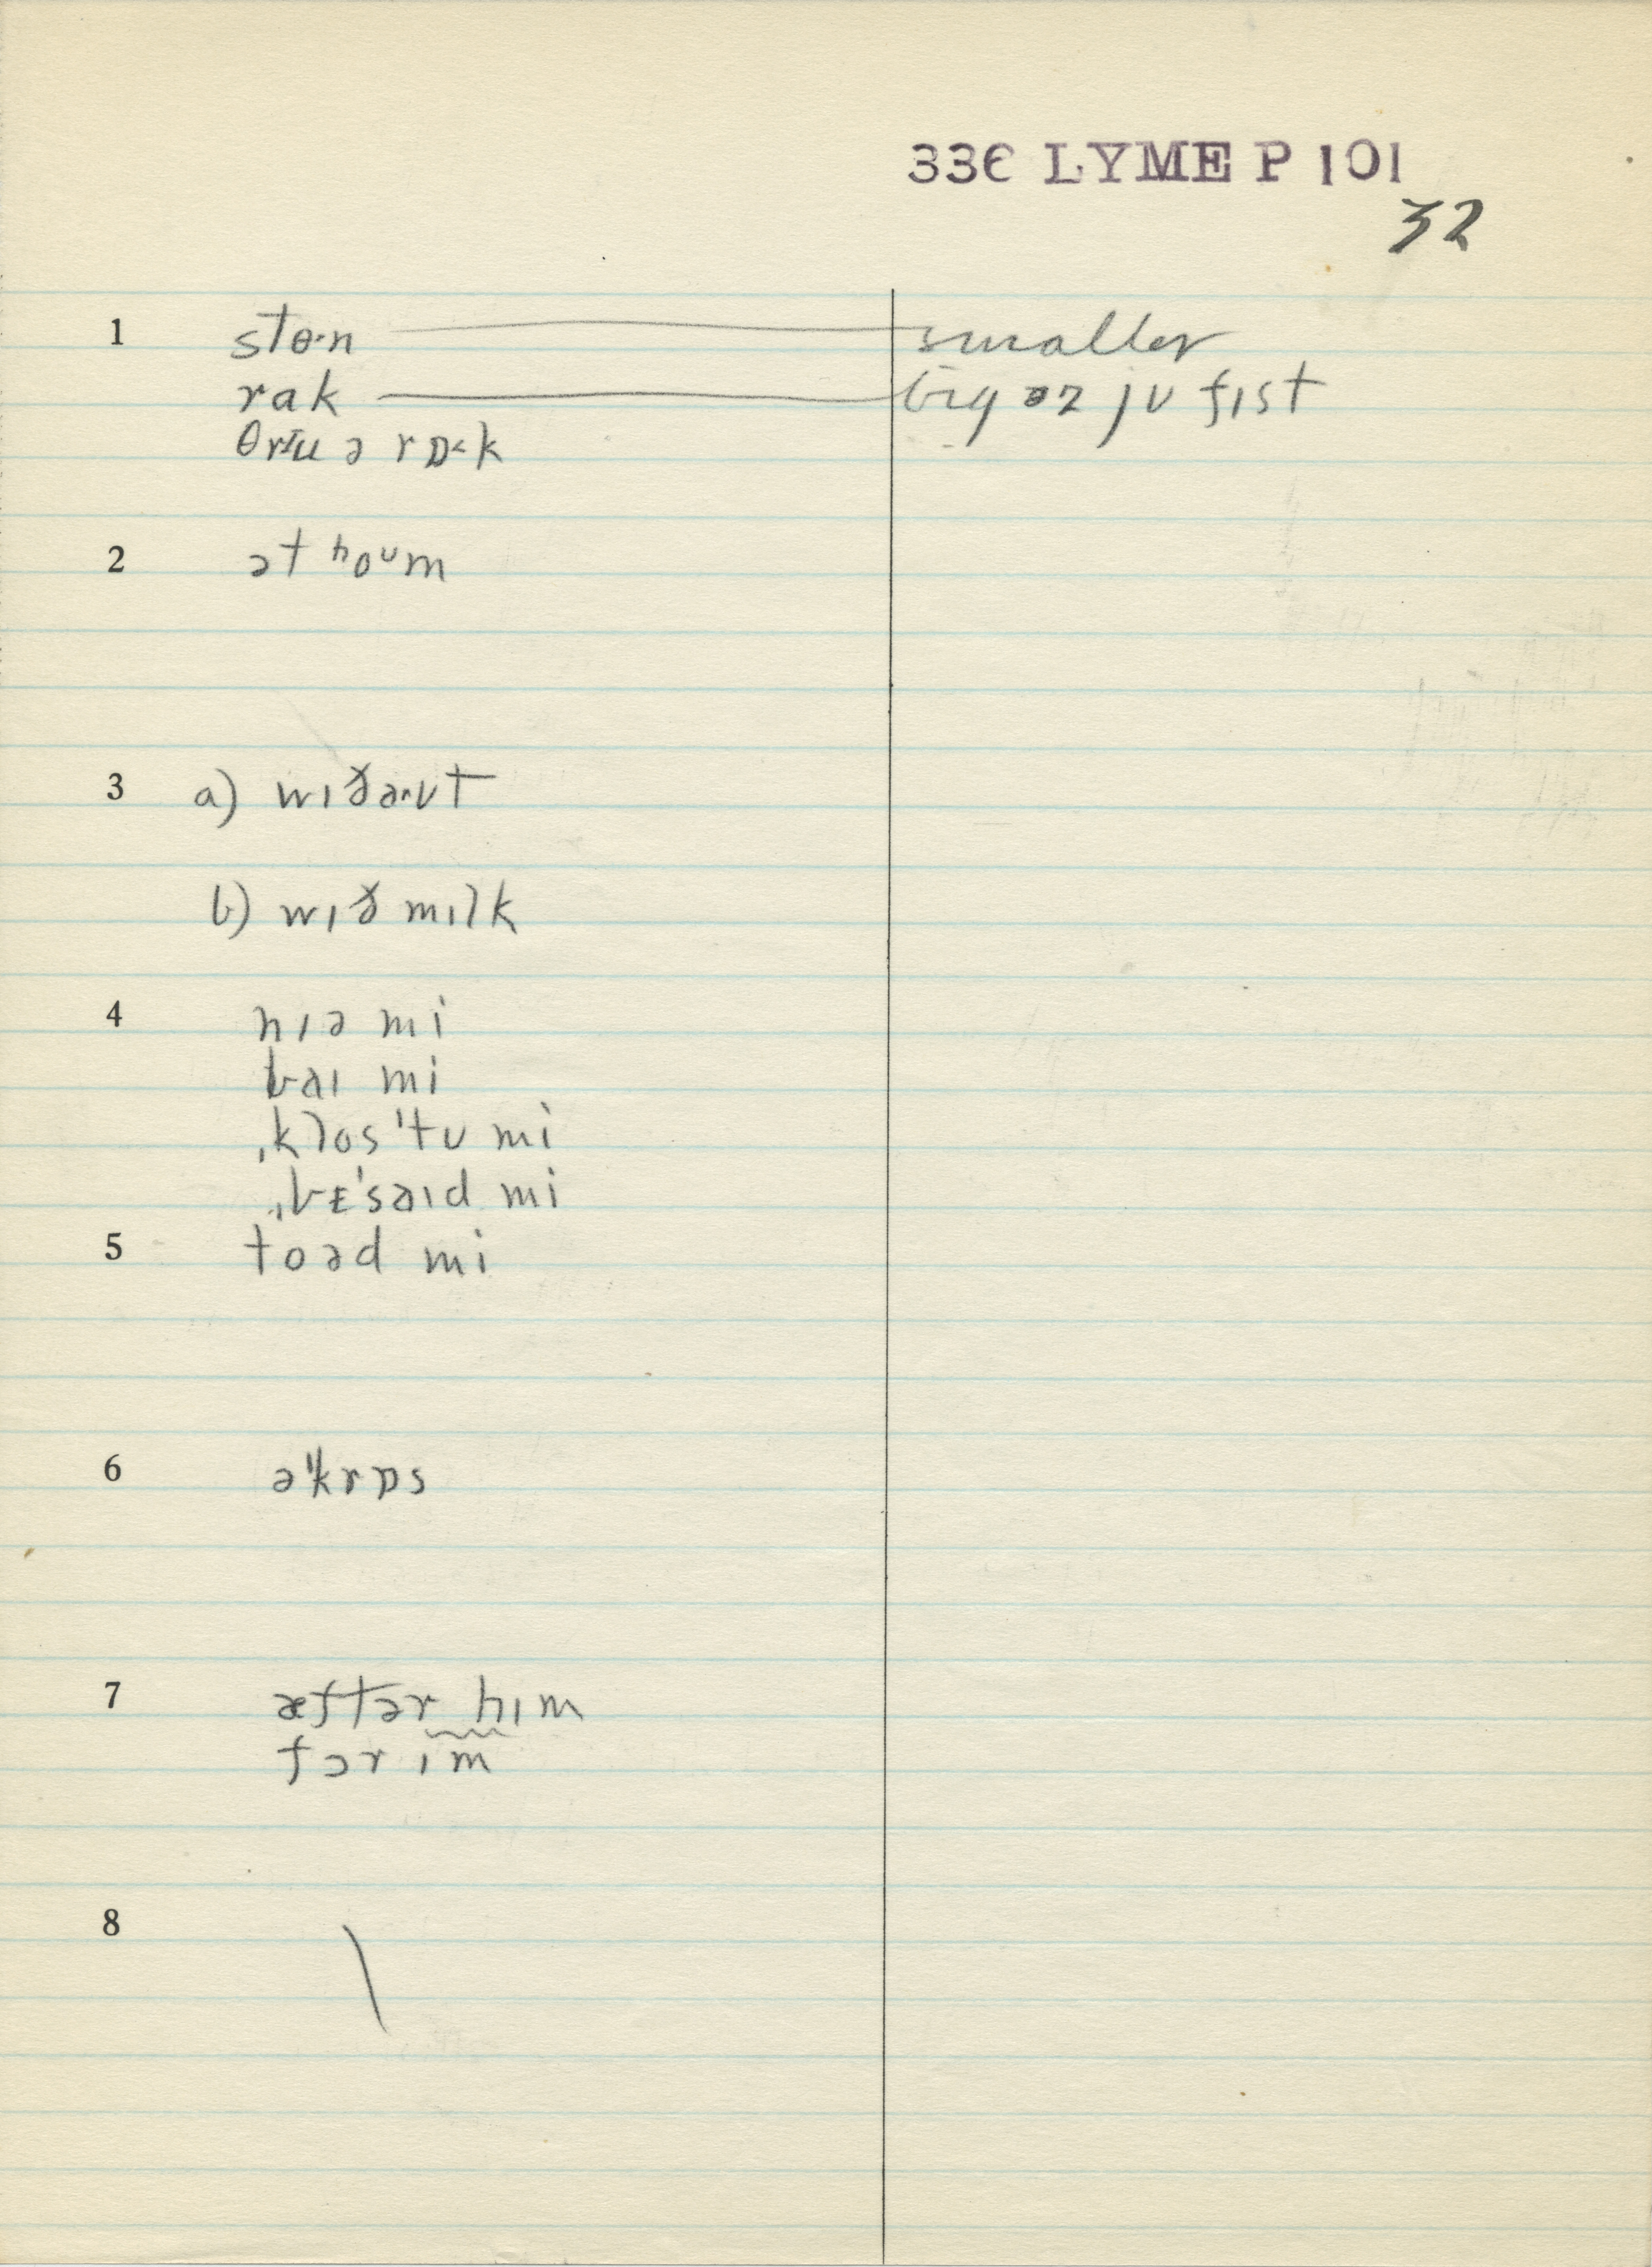 336 LYME P 101
32
1 stɵ·n smaller
rak big əz jʊ fɪst
θrɪu ə rɒ˂k
2 ət hoʊm
3 a) wɪðaʊt
b) wɪð mɪlk
4 nɪə mi
baɪ mi
ˌklos ˈtʊ mi
ˌbᵻˈsaɪd mi
5 toəd mi
6 əˈkrɒs
7 æftər hɪm
fɔr ɪm
8 \